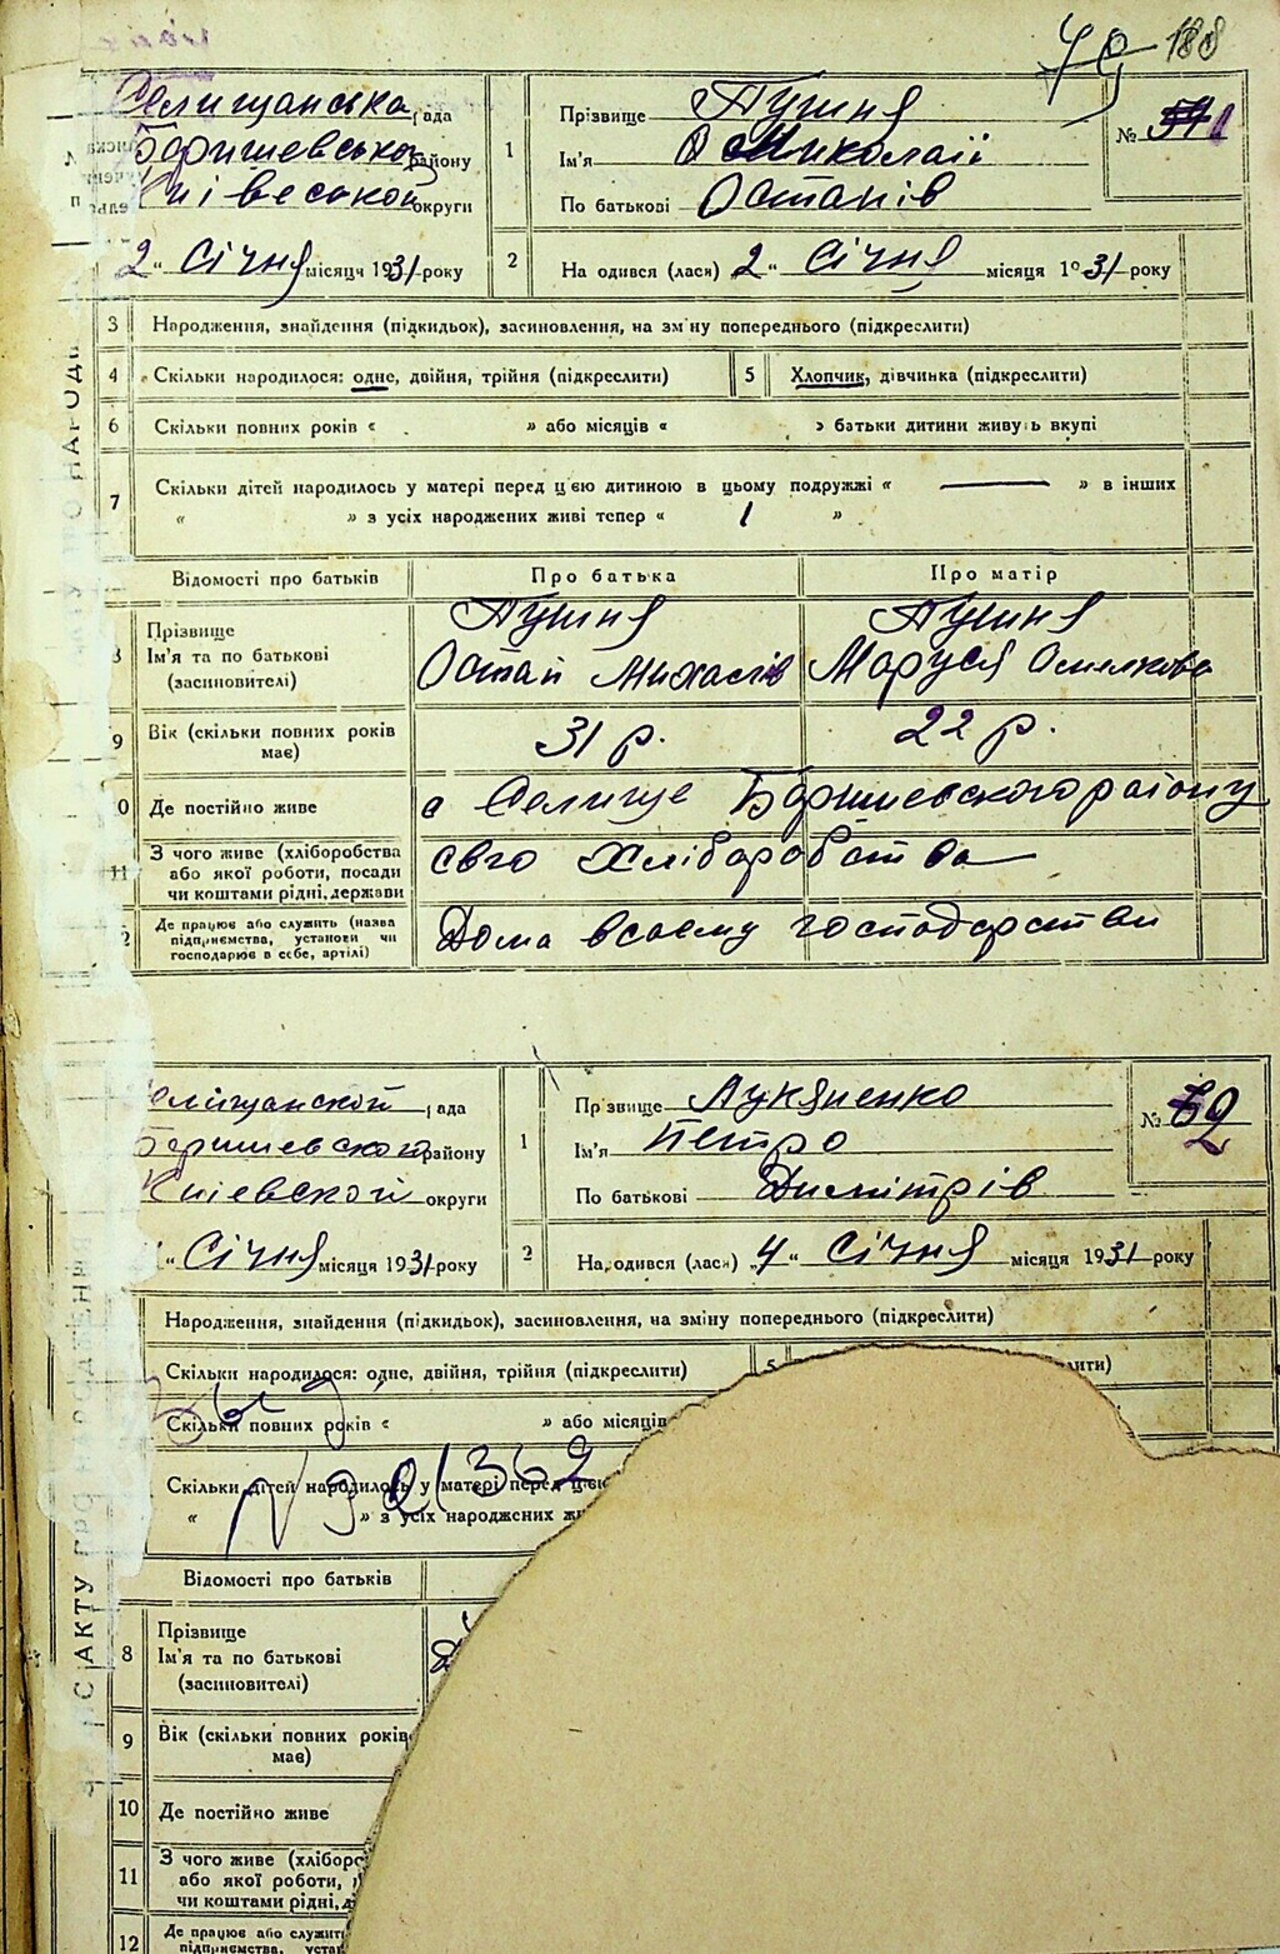 79 188
Селищанська рада
Баришевської району
Київеськой округи
2 " Січня місяця 1931 року
1
Прізвище Пушня
Ім'я Миколай
По батькові Остапів
№ 1
2
На одився (лася) 2 " Січня місяця 1931 року
3 Народження, знайдення (підкидьок), засиновлення, на зміну попереднього (підкреслити)
4 Скільки народилося: одне, двійня, трійня (підкреслити)
5 Хлопчик, дівчинка (підкреслити)
6 Скільки повних років « » або місяців « » батьки дитини живуть вкупі
7 Скільки дітей народилось у матері перед цією дитиною в цьому подружжі « — » в інших
« » з усіх народжених живі тепер « 1 »
Відомості про батьків Про батька Про матір
Прізвище Пушня Пушня
Ім'я та по батькові Остап Михаслів Маруся
(засиновителі)
9 Вік (скільки повних років має) 31 р. 22 р.
0 Де постійно живе с Селище Баришевского району
11 З чого живе (хліборобства
або якої роботи, посади
чи коштами рідні, держави
свго Хліборобства
2 Де працює або служить (назва
підприємства, установи чи
господарює в себе, артілі)
Дома всвому господарстви
АКТУ ПРО НАРОДЖЕН
елищанской рада
Баришевского району
Киевской округи
" Січня місяця 1931 року
1
Прізвище Лукяненко
Ім'я Петро
По батькові Дмитрів
№ 2
2
На одився (лася) 4 " Січня місяця 1931 року
Народження, знайдення (підкидьок), засиновлення, на зміну попереднього (підкреслити)
Скільки народилося: одне, двійня, трійня (підкреслити)
5
лити)
Скільки повних років « » або місяців
Скільки дітей народилось у матері перед цією
« » з усіх народжених жи
Відомості про батьків
8 Прізвище
Ім'я та по батькові
(засиновителі)
9 Вік (скільки повних років
має)
10 Де постійно живе
11 З чого живе (хліборо
або якої роботи,
чи коштами рідні, д
12 Де працює або служит
підприємства, устан